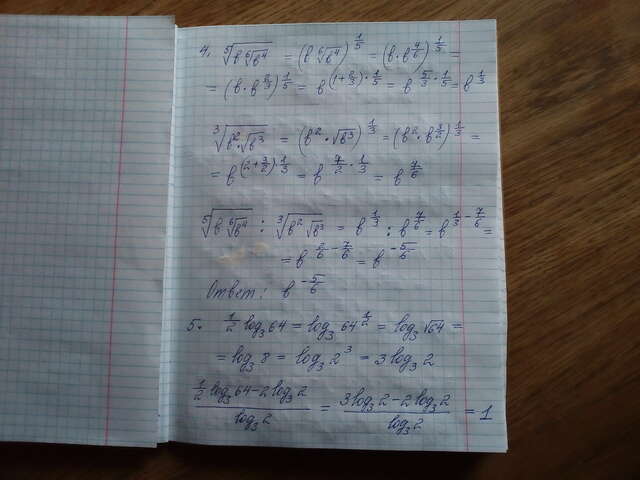 4. ⁵√(в ⁶√в⁴) = (в ⁶√в⁴)^(1/5) = (в·в^(4/6))^(1/5) =
= (в·в^(2/3))^(1/5) = в^((1+2/3)·1/5) = в^(5/3·1/5) = в^(1/3)
³√(в²·√в³) = (в²·√в³)^(1/3) = (в²·в^(3/2))^(1/3) =
= в^((2+3/2)·1/3) = в^(7/2·1/3) = в^(7/6)
⁵√(в ⁶√в⁴) : ³√(в² √в³) = в^(1/3) : в^(7/6) = в^(1/3-7/6) =
= в^(2/6-7/6) = в^(-5/6)
Ответ: в^(-5/6)
5. 1/2 log₃64 = log₃64^(1/2) = log₃√64 =
= log₃8 = log₃2³ = 3log₃2
(1/2 log₃64-2log₃2)/(log₃2) = (3log₃2-2log₃2)/(log₃2) = 1